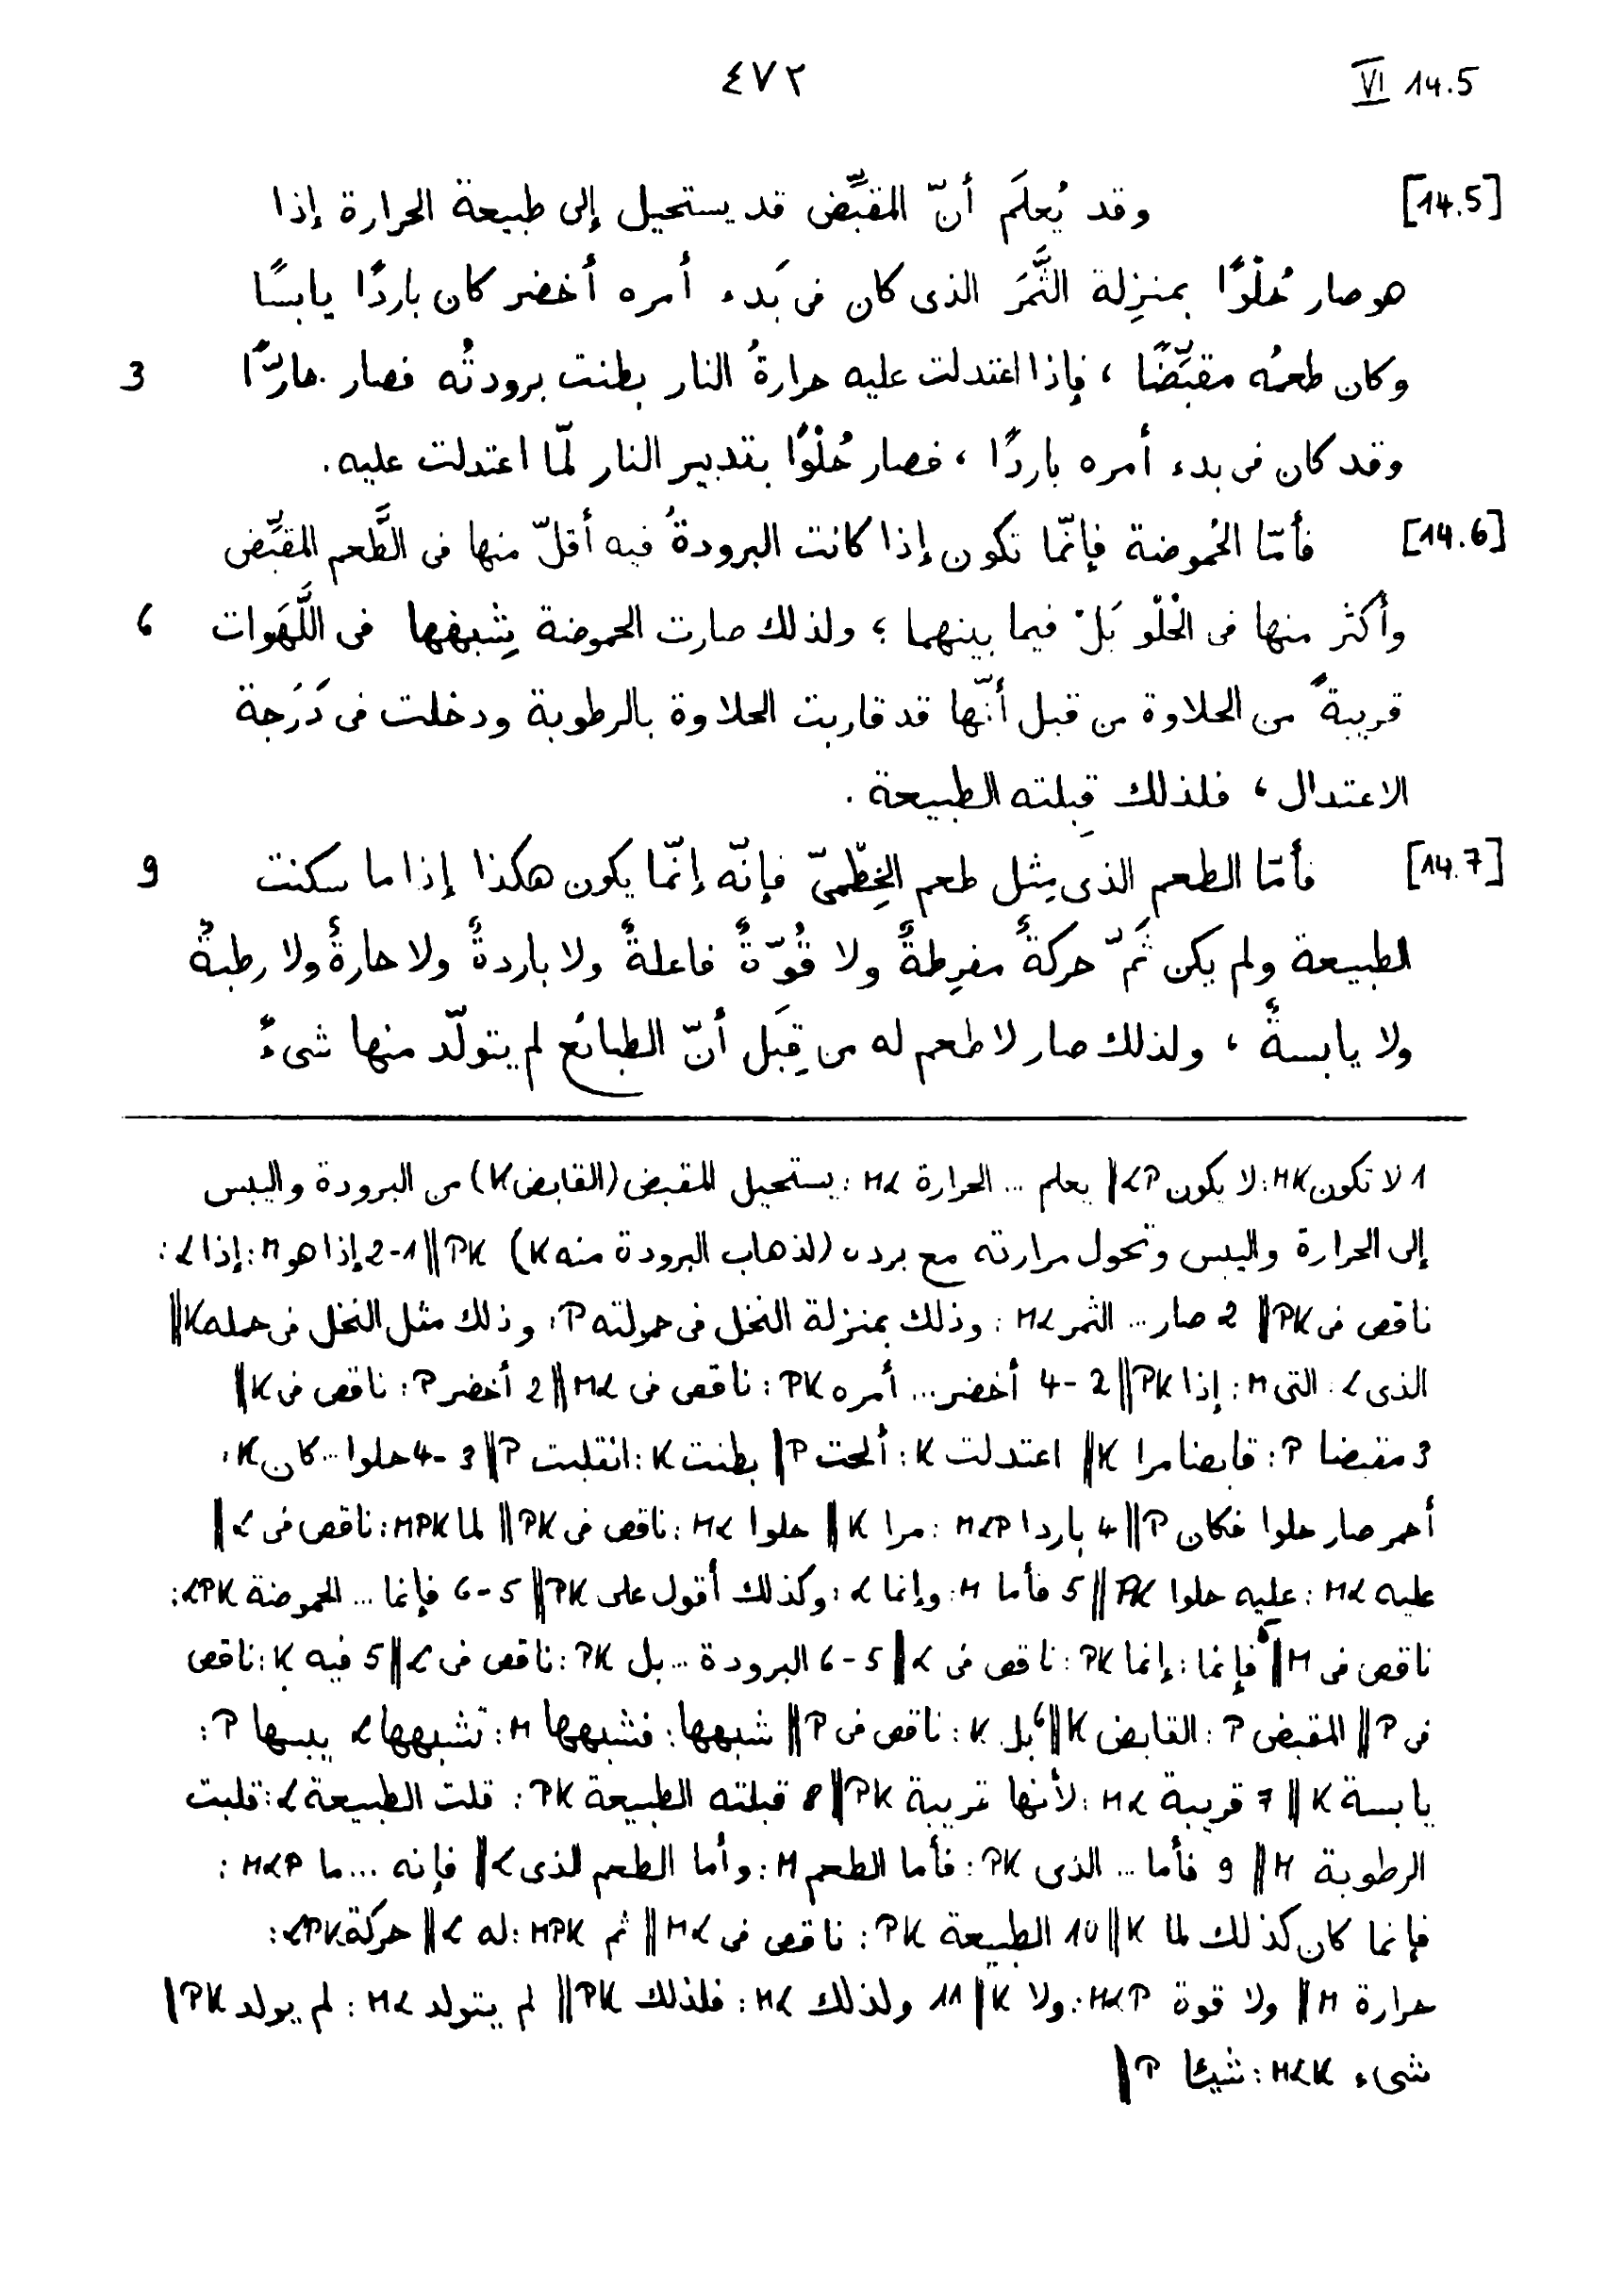 VI 14.5 ٤٧٢
[14.5] وقد يُعلَم أنّ المقبِّض قد يستحيل إلى طبيعة الحرارة إذا
هو صار حُلْوًا بمنزِلة الثَّمَر الذى كان فى بَدء أمره أخضر كان باردًا يابسًا
3 وكان طعمُه مقبِّضًا ، فإذا اعتدلت عليه حرارةُ النار بطنت برودتُه فصار حارًّا
وقد كان فى بدء أمره باردًا ، فصار حُلْوًا بتدبير النار لمّا اعتدلت عليه .
[14.6] فأمّا الحُموضة فإنّما تكون إذا كانت البرودةُ فيه أقلّ منها فى الطَّعم المقبِّض
6 وأكثر منها فى الحُلْو بَلْ فيما بينهما ؛ ولذلك صارت الحموضة بِشبهها فى اللَّهَوات
قريبةً من الحلاوة من قبل أنّها قد قاربت الحلاوة بالرطوبة ودخلت فى دَرَجة
الاعتدال ، فلذلك قبِلته الطبيعة .
[14.7] فأمّا الطعم الذى مِثل طعم الخِطْمىّ فإنّه إنّما يكون هكذا إذا ما سكنت 9
الطبيعة ولم يكن ثَمّ حركةٌ مفرِطةٌ ولا قُوّةٌ فاعلةٌ ولا باردةٌ ولا حارةٌ ولا رطبةٌ
ولا يابسةٌ ، ولذلك صار لا طعم له من قِبَل أنّ الطبائع لم يتولّد منها شىءٌ
1 لا تكون MK : لا يكون LP ‖ يعلم ... الحرارة ML : يستحيل المقبض (القابض K) من البرودة واليبس
إلى الحرارة واليبس وتحول مرارته مع برده (لذهاب البرودة منه K) PK ‖ 1-2 إذا هو M : إذا L :
ناقص فى PK ‖ 2 صار ... الثمر ML : وذلك بمنزلة النخل فى حمولته P : وذلك مثل النخل فى حمله K ‖
الذى L : التى M : إذا PK ‖ 2-4 أخضر ... أمره PK : ناقص فى ML ‖ 2 أخضر P : ناقص فى K ‖
3 مقبضا P : قابضا مرا K ‖ اعتدلت K : ألحت P ‖ بطنت K : انقلبت P ‖ 3-4 حلوا ... كان K :
أحمر صار حلوا فكان P ‖ 4 باردا MLP : مرا K ‖ حلوا ML : ناقص فى PK ‖ لما MPK : ناقص فى L ‖
عليه ML : عليه حلوا PK ‖ 5 فأما M : وإنما L : وكذلك أقول على PK ‖ 5-6 فإنما ... الحموضة LPK :
ناقص فى M ‖ فإنما : إنما PK : ناقص فى L ‖ 5-6 البرودة ... بل PK : ناقص فى L ‖ 5 فيه K : ناقص
فى P ‖ المقبض P : القابض K ‖ 6 بل K : ناقص فى P ‖ شبهها : فشبهها M : تشبهها L يبسها P :
يابسة K ‖ 7 قريبة ML : لأنها قريبة PK ‖ 8 قبلته الطبيعة PK : قلت الطبيعة L : قلبت
الرطوبة M ‖ 9 فأما ... الذى PK : فأما الطعم M : وأما الطعم لذى L ‖ فإنه ... ما MLP :
فإنما كان كذلك لما K ‖ 10 الطبيعة PK : ناقص فى ML ‖ ثم MPK : له L ‖ حركة LPK :
حرارة M ‖ ولا قوة MLP : ولا K ‖ 11 ولذلك ML : فلذلك PK ‖ لم يتولد ML : لم يولد PK ‖
شىء MLK : شيئا P ‖